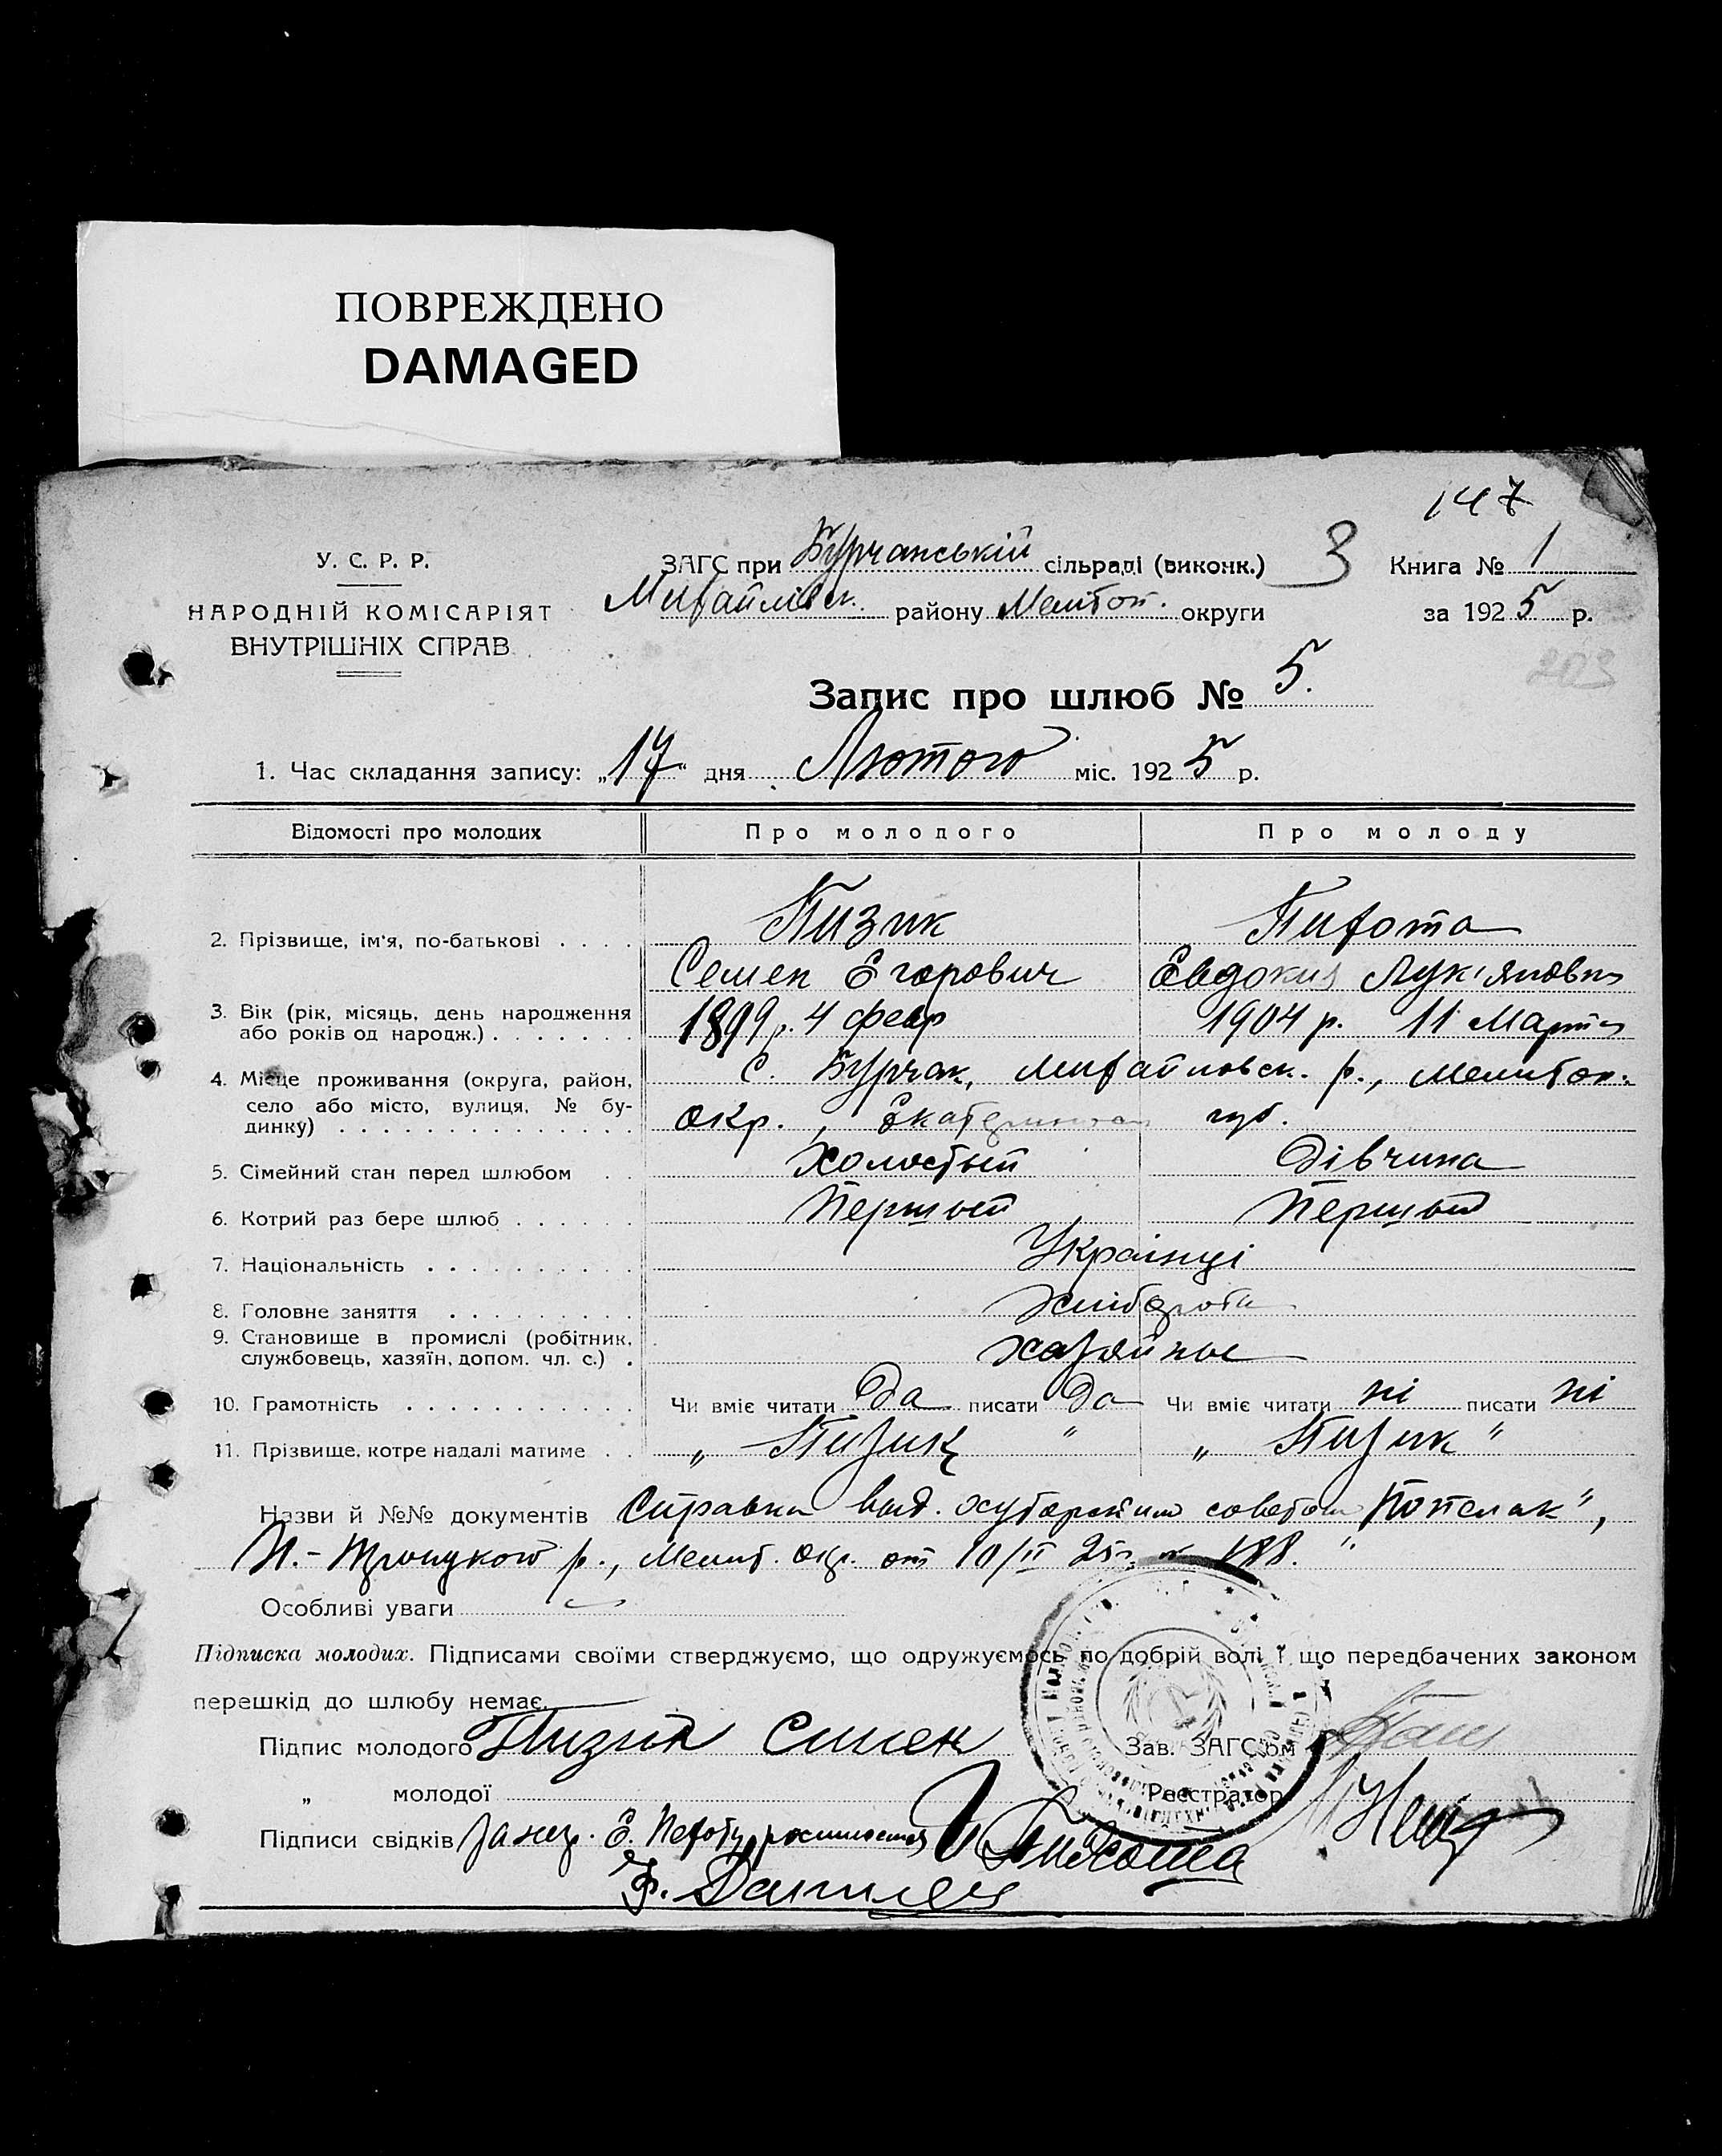 ПОВРЕЖДЕНО
DAMAGED
147
У. С. Р. Р.
НАРОДНІЙ КОМІСАРІЯТ
ВНУТРІШНІХ СПРАВ
ЗАГС при Бурчанській сільраді (виконк.) 3 Книга № 1
Михайлівск. району Мелітоп. округи за 1925 р.
203
Запис про шлюб № 5.
1. Час складання запису: „17“ дня Лютого міс. 1925 р.
Відомості про молодих Про молодого Про молоду
2. Прізвище, ім'я, по-батькові Пизик Пихота
Семен Егорович Евдокия Лук'яновна
3. Вік (рік, місяць, день народження або років од народж.) 1899 р. 4 февр 1904 р. 11 Марта
4. Місце проживання (округа, район, с. Бурчак, Михайловск. р., Мелитоп.
село або місто, вулиця, № будинку) окр., губ.
5. Сімейний стан перед шлюбом Холостый Дівчина
6. Котрий раз бере шлюб Первый Первый
7. Національність Українці
8. Головне заняття
9. Становище в промислі (робітник, службовець, хазяїн, допом. чл. с.)
10. Грамотність Чи вміє читати Да писати Да Чи вміє читати ні писати ні
11. Прізвище, котре надалі матиме „ Пизик " „ Пизик "
Назви й №№ документів Справка выд. советом
р., Мелит. окр. от 10/II 25 г.
Особливі уваги
Підписка молодих. Підписами своїми стверджуємо, що одружуємось по добрій волі і що передбачених законом
перешкід до шлюбу немає.
Підпис молодого Пизик Семен Зав. ЗАГС'ом
„ молодої Реєстратор
Підписи свідків за негр. Е. Пихоту